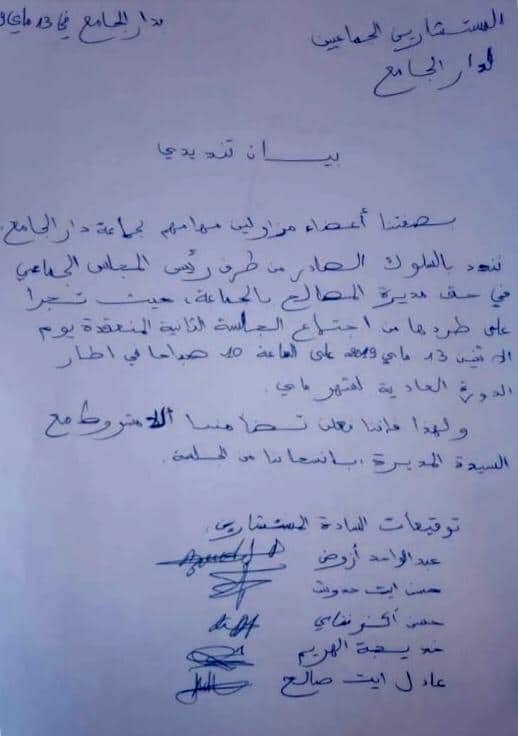 المستشارين الجماعيين
لدار الجامع
بدار الجامع في 13 ماي
بيــــان تنديدي
بصفتنا أعضاء مزاولين مهامهم بجماعة دار الجامع.
نندد بالسلوك الصادر من طرف رئيس المجلس الجماعي
في حق مديرة المصالح بالجماعة، حيث تجرأ
على طردها من اجتماع الجلسة الثانية المنعقدة يوم
الاثنين 13 ماي 2019 على الساعة 10 صباحا في اطار
الدورة العادية لشهر ماي.
ولهذا فإننا نعلن تضامننا اللامشروط مع
السيدة المديرة بانسحابنا من الجلسة.
توقيعات السادة المستشارين
عبد الواحد أزوض
حسن ايت حدوش
حسن
خديجة الهريم
عادل ايت صالح